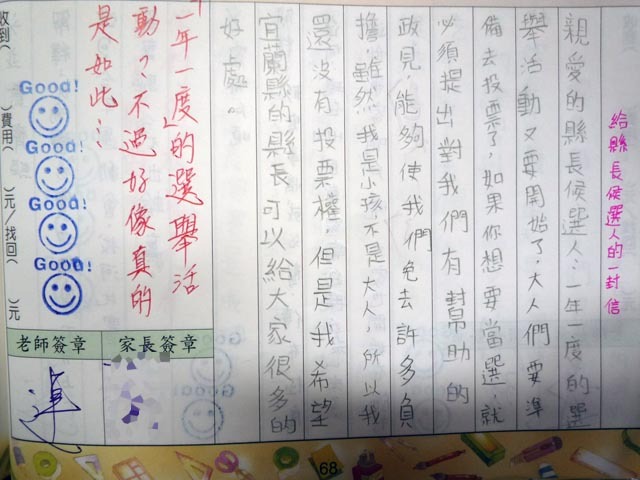 給縣長候選人的一封信
親愛的縣長候選人：一年一度的選
舉活動又要開始了，大人們要準
備去投票了，如果你想要當選，就
必須提出對我們有幫助的
政見，能夠使我們免去許多負
擔，雖然我是小孩，不是大人，所以我
還沒有投票權，但是我希望
宜蘭縣的縣長可以給大家很多的
好處。
「一年一度」的選舉活
動？不過好像真的
是如此…
Good!
Good!
Good!
Good!
收到（　）費用（　）元/找回（　）元
家長簽章
老師簽章
68